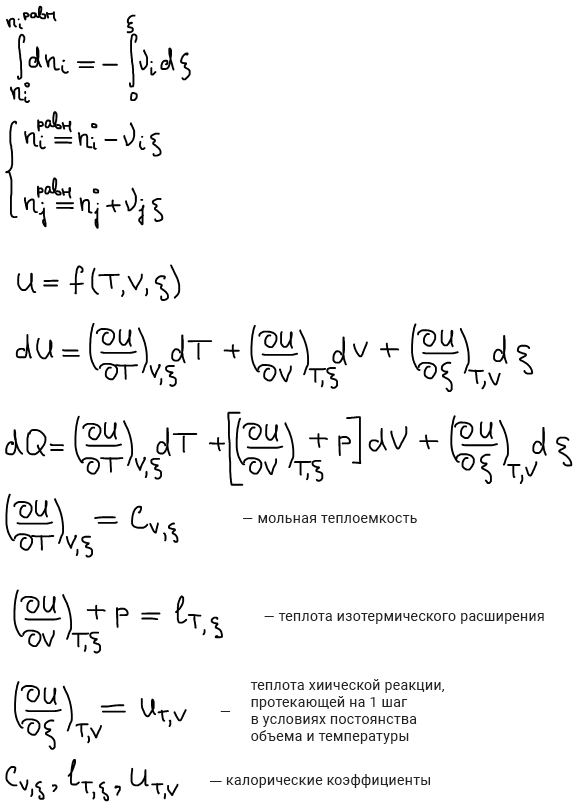 ∫_{nᵢ°}^{nᵢ^{равн}} dnᵢ = − ∫₀^ξ νᵢ dξ
{ nᵢ^{равн} = nᵢ° − νᵢ ξ
nⱼ^{равн} = nⱼ° + νⱼ ξ
U = f(T, V, ξ)
dU = (∂U/∂T)_{V,ξ} dT + (∂U/∂V)_{T,ξ} dV + (∂U/∂ξ)_{T,V} dξ
dQ = (∂U/∂T)_{V,ξ} dT + [(∂U/∂V)_{T,ξ} + P] dV + (∂U/∂ξ)_{T,V} dξ
(∂U/∂T)_{V,ξ} = C_{V,ξ} — мольная теплоемкость
(∂U/∂V)_{T,ξ} + P = l_{T,ξ} — теплота изотермического расширения
(∂U/∂ξ)_{T,V} = U_{T,V} — теплота хиической реакции,
протекающей на 1 шаг
в условиях постоянства
объема и температуры
C_{V,ξ}, l_{T,ξ}, U_{T,V} — калорические коэффициенты